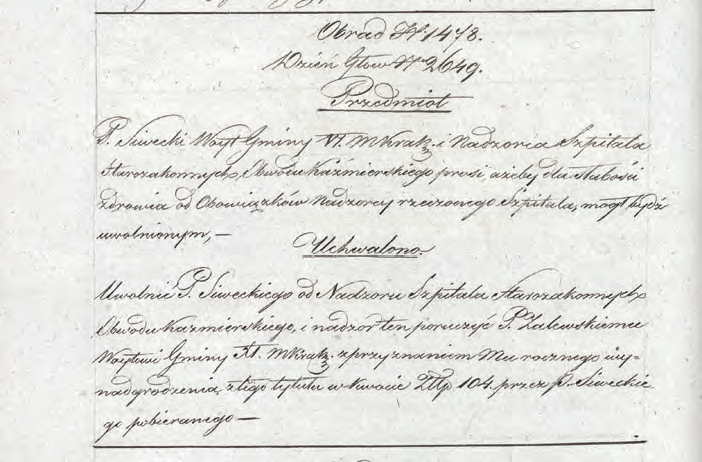 Obrad N 1478.
Dzien Głow N 2649.
Przedmiot
P. Siwecki Woyt Gminy VI. M Krak. i Nadzorca Szpitala
Starozakonnych Obwodu Kaźmierskiego prosi, ażeby dla słabości
zdrowia od Obowiązków Nadzorcy rzeczonego Szpitala, mógł bydź
uwolnionym, —
Uchwalono.
Uwolnić P. Siweckiego od Nadzoru Szpitala Starozakonnych
Obwodu Kazmierskiego, i nadzór ten poruczyć P. Zalewskiemu
Woytowi Gminy XI. M Krak. z przyznaniem Mu rocznego wy-
nadgrodzenia z tego tytułu w kwocie Złp 104. przez P. Siweckie
go pobieranego —